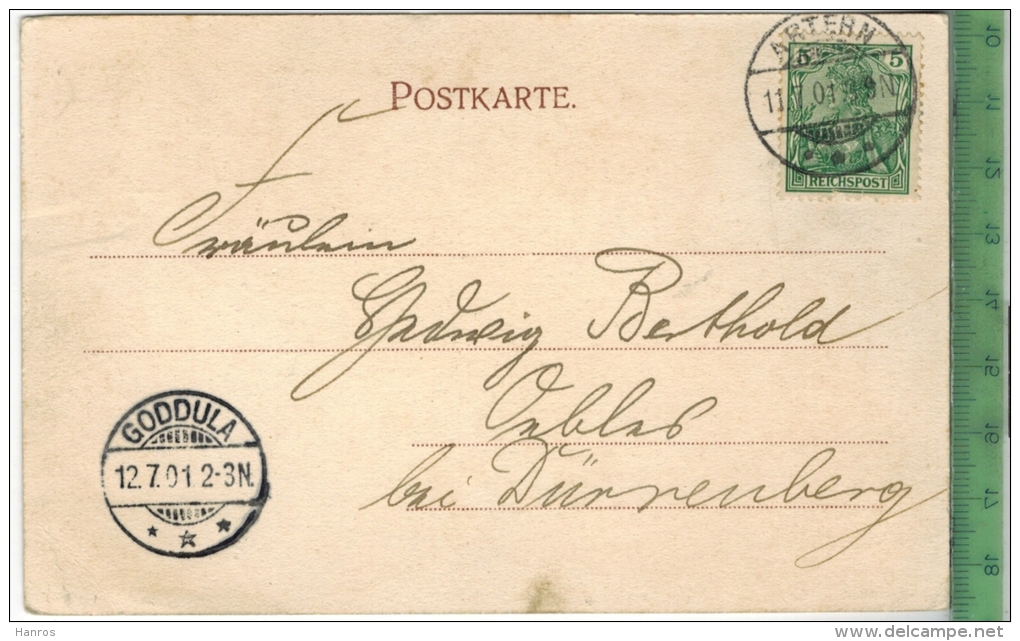 ARTERN
5 5
11.7.01
REICHSPOST
POSTKARTE.
Fräulein
Hedwig Berthold
Oebles
bei Dürrenberg
GODDULA
12.7.01 2-3N.
10
11
12
13
14
15
16
17
18
Hanros
delcampe.net